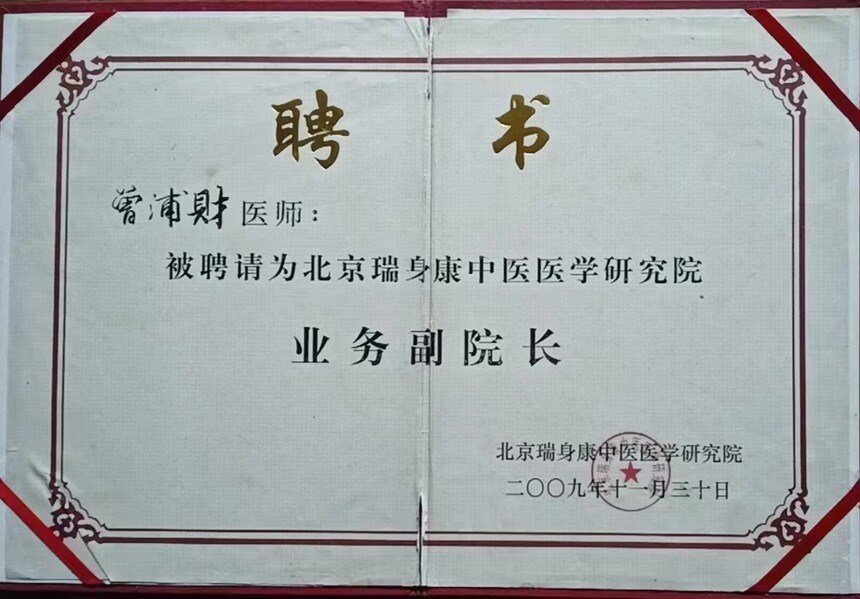 聘书
曾浦財医师：
被聘请为北京瑞身康中医医学研究院
业务副院长
北京瑞身康中医医学研究院
二〇〇九年十一月三十日